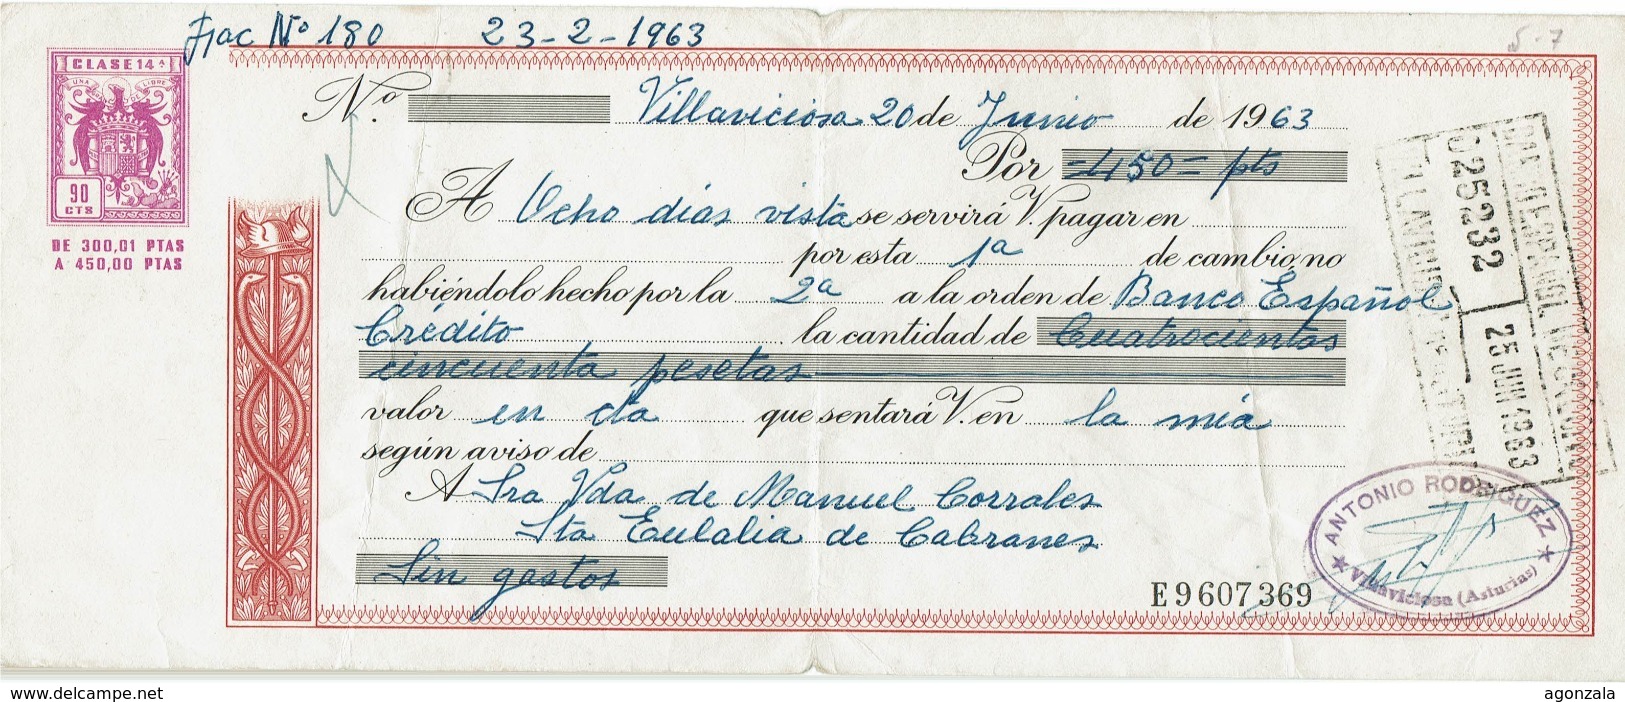 Frac Nº 180 23-2-1963
S-7
CLASE 14ª
UNA GRANDE LIBRE
90
CTS
DE 300,01 PTAS
A 450,00 PTAS
N.º Villaviciosa 20 de Junio de 1963
Por =450= pts
A Ocho días vista se servirá V. pagar en
por esta 1ª de cambio, no
habiéndolo hecho por la 2ª a la orden de Banco Español
Crédito la cantidad de Cuatrocientas
cincuenta pesetas
valor en cta que sentará V. en la mía
según aviso de
A Sra Vda de Manuel Corrales
Sta Eulalia de Cabranes
Sin gastos
E9607369
025232
25 JUN 1963
ANTONIO RODRIGUEZ
Villaviciosa (Asturias)
https://www.delcampe.net
agonzala